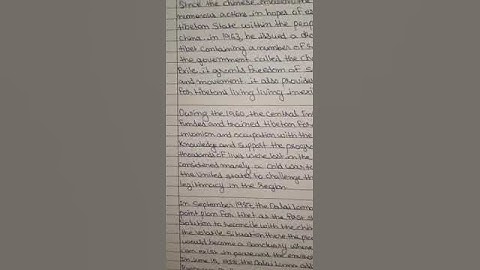 Since the Chinese invasion, the
numerous actions in hopes of es
tibetan State within the peop
china in 1963, he issued a dra
tibet containing a number of
the government called the Ch
Exile it grants freedom of
and movement it also provide
for tibetans living living in exi
During the 1960, the Central In
Funded and trained tibetan For
invasion and occupation with the
Knowledge and Support the progra
thousands of lives were lost in the
considered merely a cold war ta
the United states to challenge th
legitimacy in the Region
In September 1987, the Dalai Lama
point plan for tibet as the first s
solution to reconcile with the chi
the volatile Situation there the pla
would become a Sanctuary where
can exist in peace and the enviro
In June 15, 1988, the Dalai Lama add